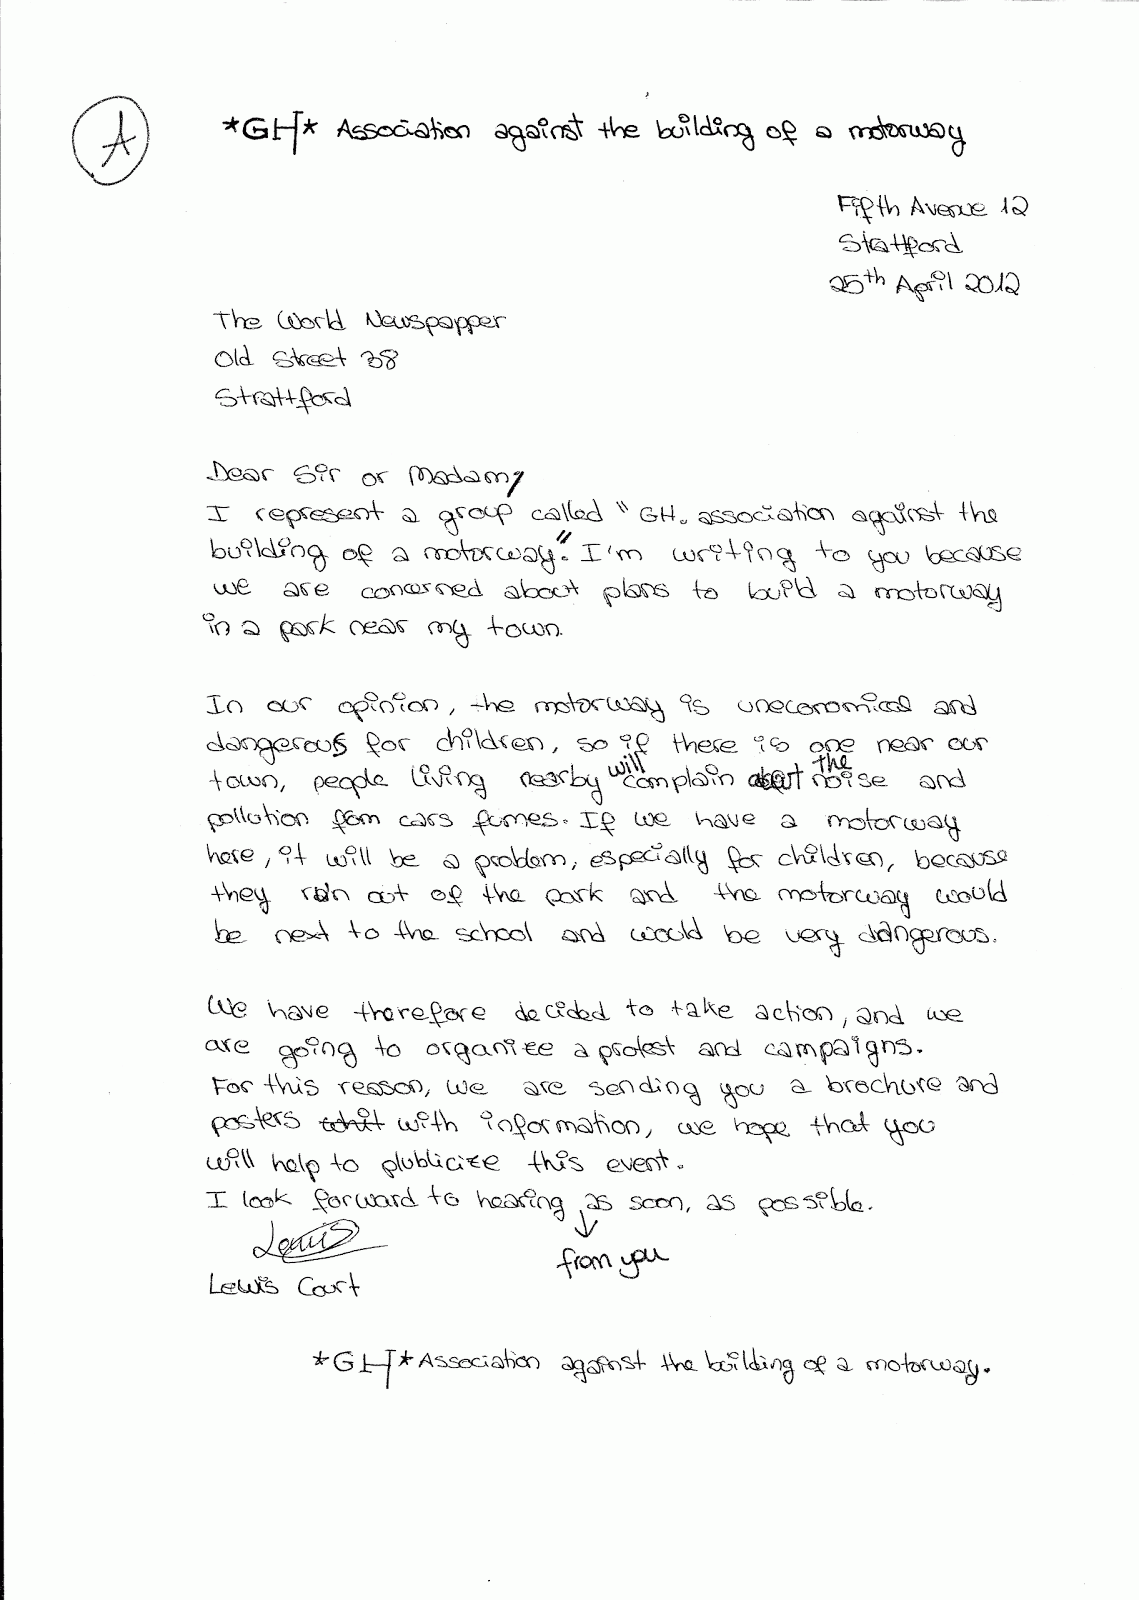 A
*GH* Association against the building of a motorway
Fifth Avenue 12
Stattford
25th April 2012
The World Newspapper
Old Street 38
Strattford
Dear Sir or Madam,
I represent a group called "GH. association against the
building of a motorway". I'm writing to you because
we are concerned about plans to build a motorway
in a park near my town.
In our opinion, the motorway is uneconomical and
dangerous for children, so if there is one near our
town, people living nearby will complain about the noise and
pollution fom cars fumes. If we have a motorway
here, it will be a problem, especially for children, because
they run out of the park and the motorway would
be next to the school and would be very dangerous.
We have therefore decided to take action, and we
are going to organize a protest and campaigns.
For this reason, we are sending you a brochure and
posters with information, we hope that you
will help to plublicize this event.
I look forward to hearing as soon, as possible.
from you
Lewis
Lewis Court
*GH* Association against the building of a motorway.